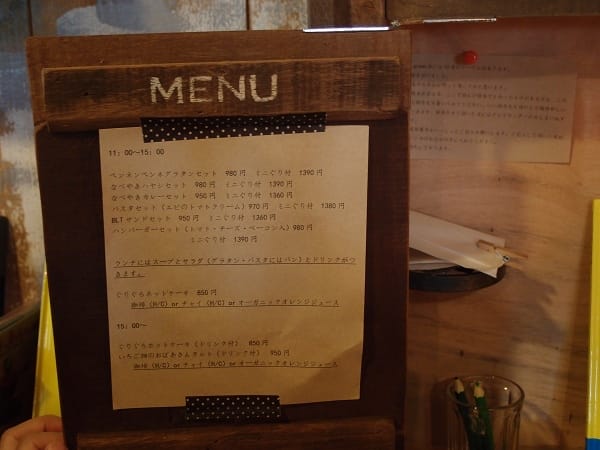 MENU
11：00～15：00
ペンネンペンネグラタンセット 980円 ミニぐり付 1390円
なべやきハヤシセット 980円 ミニぐり付 1390円
なべやきカレーセット 950円 ミニぐり付 1360円
パスタセット（エビのトマトクリーム）970円 ミニぐり付 1380円
BLTサンドセット 950円 ミニぐり付 1360円
ハンバーガーセット（トマト・チーズ・ベーコン入）980円
ミニぐり付 1390円
ランチにはスープとサラダ（グラタン・パスタにはパン）とドリンクがつ
きます。
ぐりぐらホットケーキ 850円
珈琲（H/C）or チャイ（H/C）or オーガニックオレンジジュース
15：00～
ぐりぐらホットケーキ（ドリンク付） 850円
いちご畑のおばあさんタルト（ドリンク付） 950円
珈琲（H/C）or チャイ（H/C）or オーガニックオレンジジュース